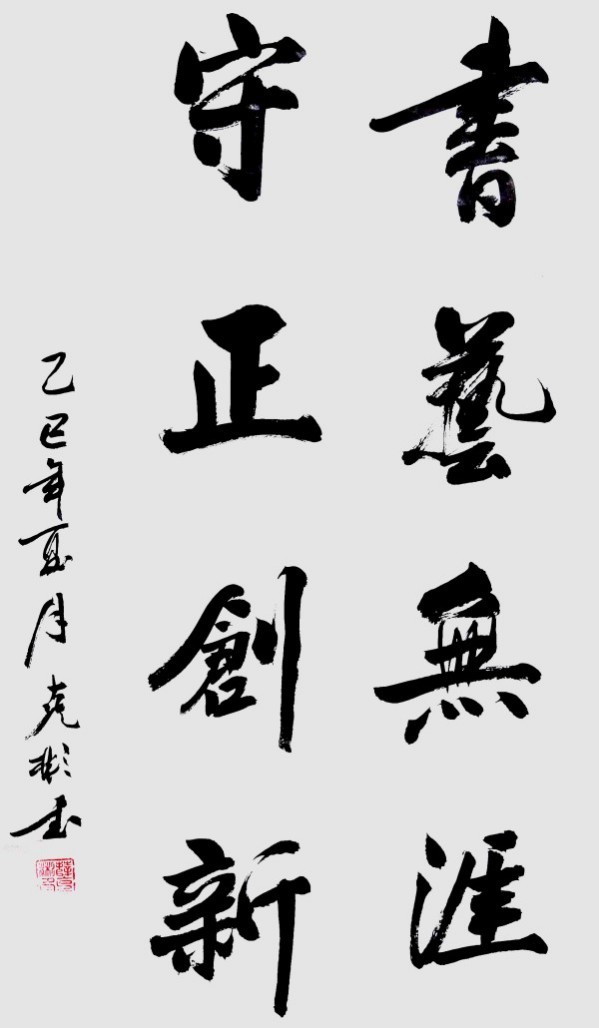 書藝無涯
守正創新
乙巳年夏月克彬书